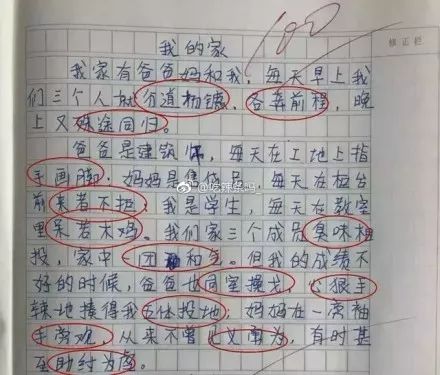 100
修正栏
我的家
我家有爸爸妈和我，每天早上我
们三个人就分道扬镳、各奔前程，晚
上又殊途同归。
爸爸是建筑师，每天在工地上指
手画脚，妈妈是售货员，每天在柜台
前来者不拒，我是学生，每天在教室
里呆若木鸡。我们家三个成员臭味相
投，家中一团和气。但我的成绩不
好的时候，爸爸也同室操戈，心狠手
辣地揍得我五体投地，妈妈在一旁袖
手旁观，从来不曾见义勇为，有时甚
至助纣为虐。